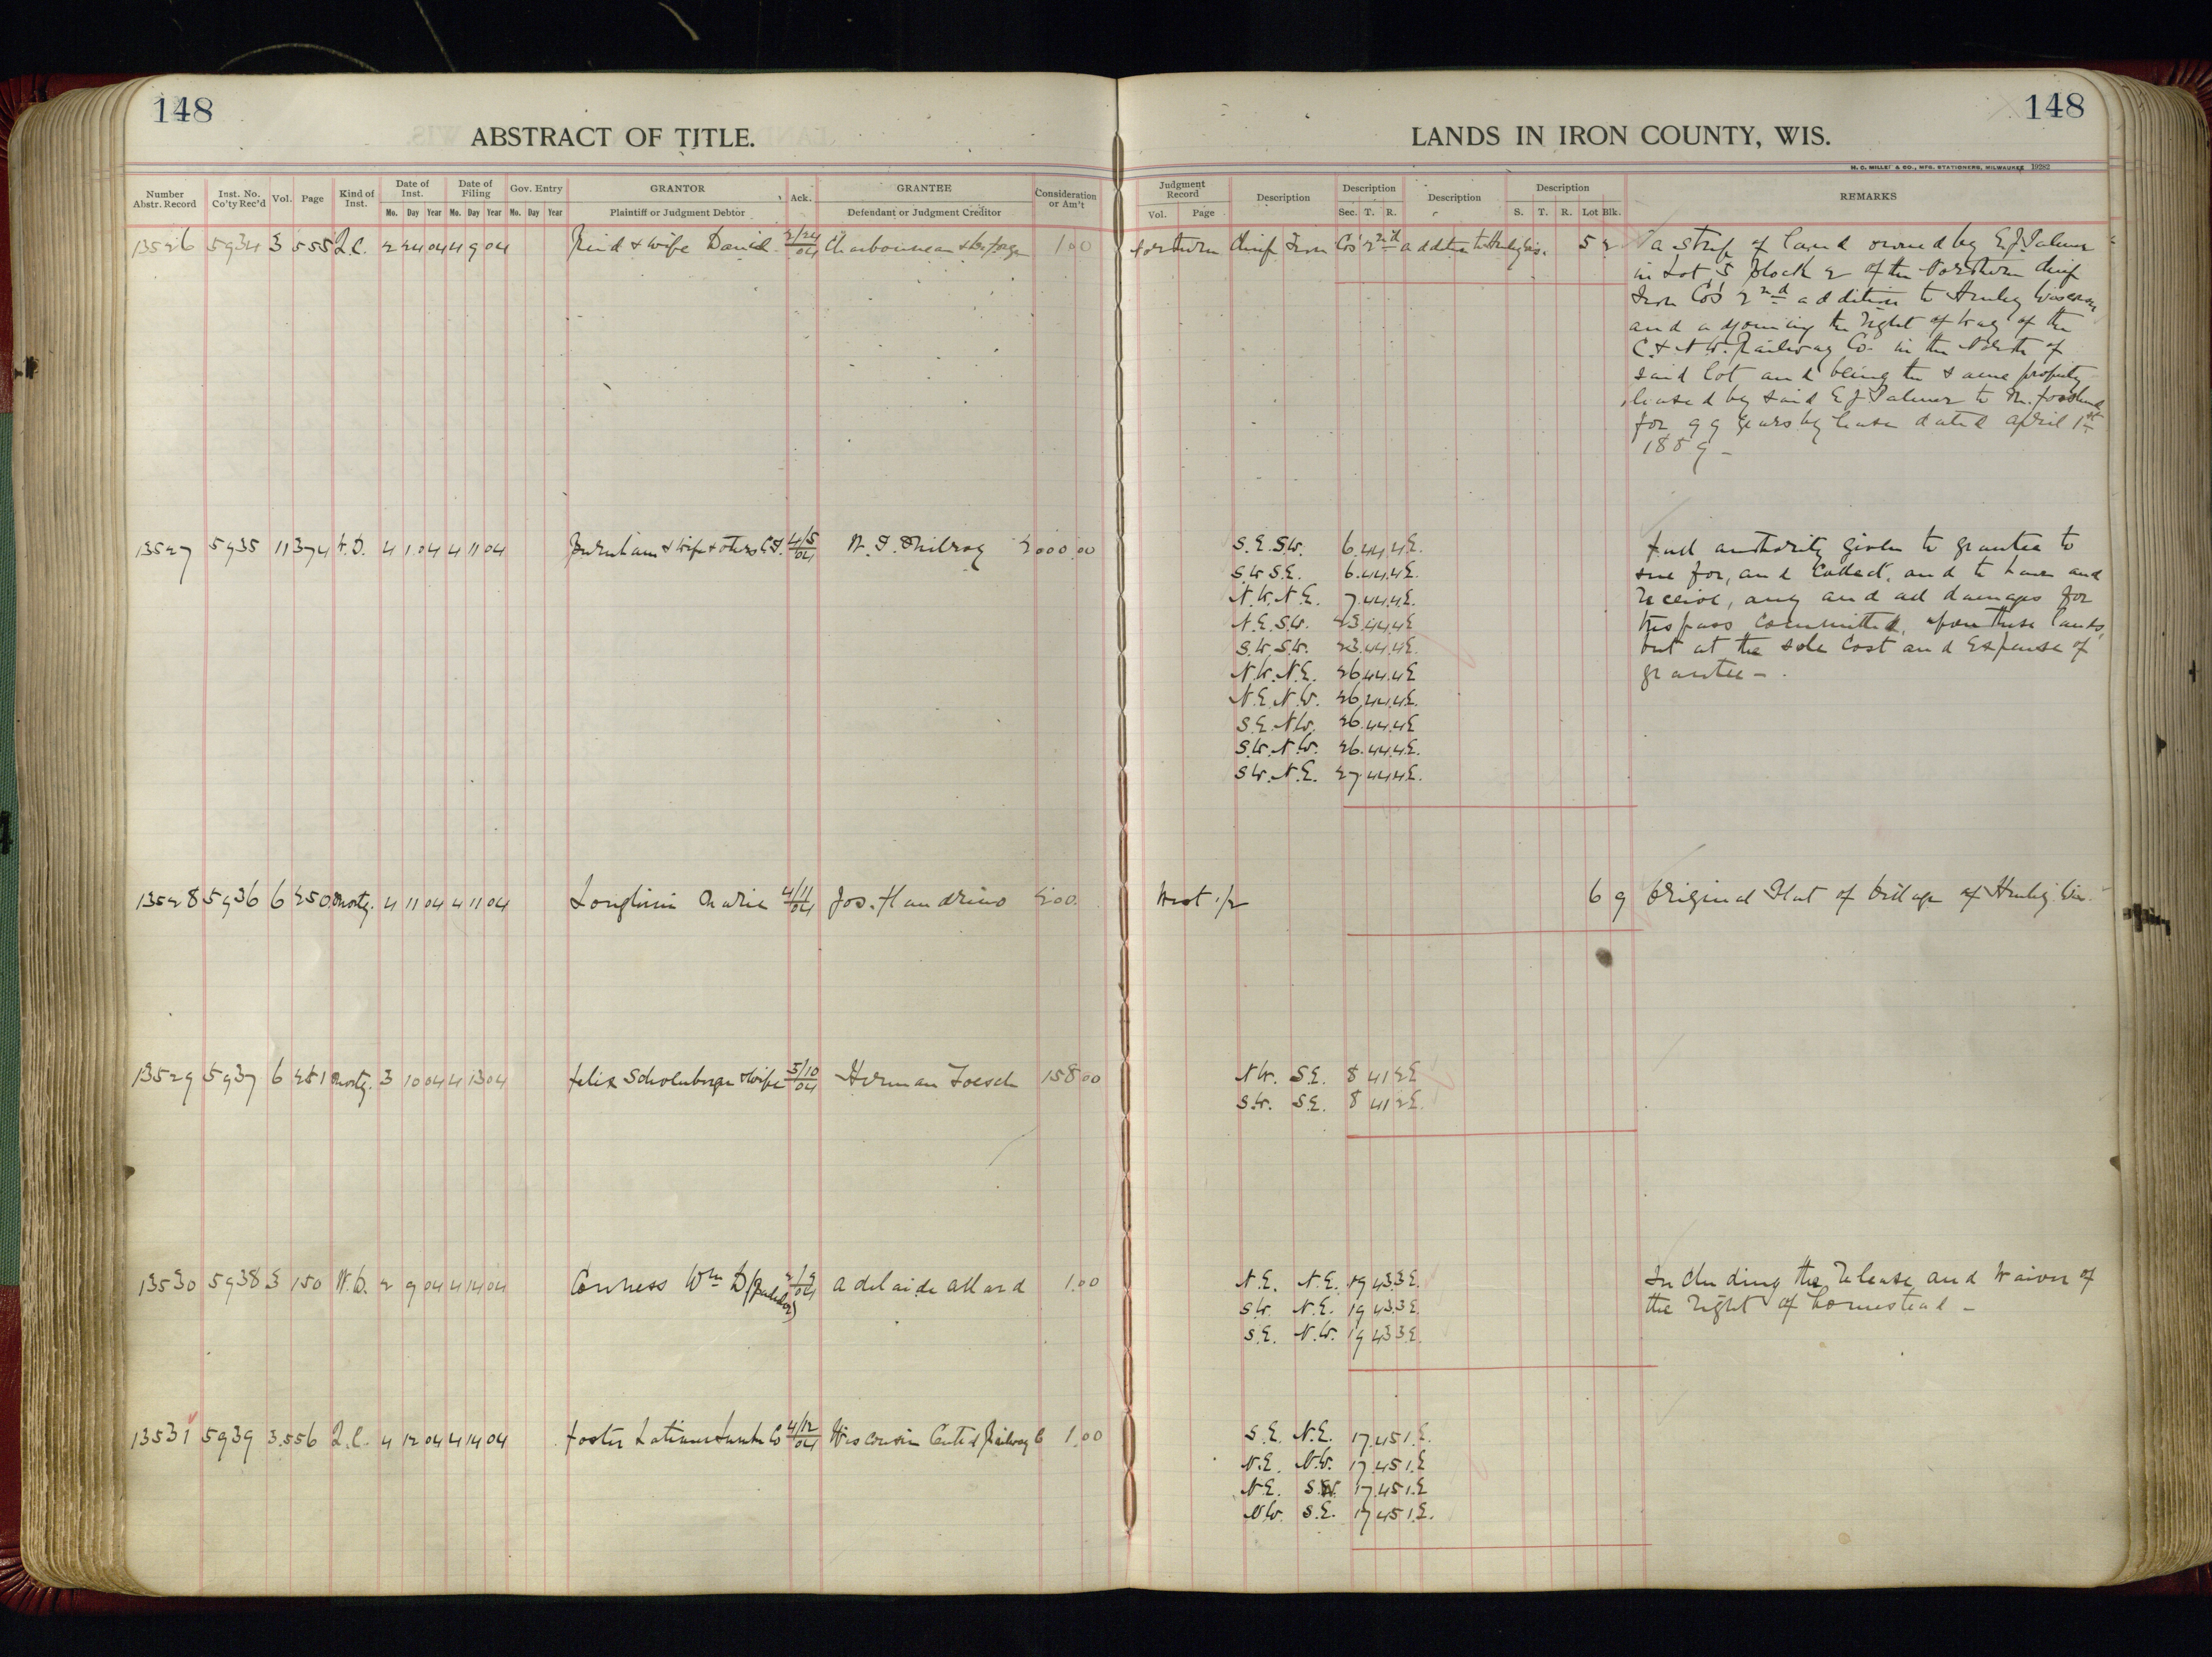 148
148
ABSTRACT OF TITLE.
LANDS IN IRON COUNTY, WIS.
H. C. MILLER & CO., MFG. STATIONERS, MILWAUKEE 19282
Number Abstr. Record
Inst. No. Co'ty Rec'd
Vol.
Page
Kind of Inst.
Date of Inst.
Mo. Day Year
Date of Filing
Mo. Day Year
Gov. Entry
Mo. Day Year
GRANTOR
Plaintiff or Judgment Debtor
Ack.
GRANTEE
Defendant or Judgment Creditor
Consideration or Am't
Judgment Record
Vol. Page
Description
Description
Sec. T. R.
Description
Description
S. T. R. Lot Blk.
REMARKS
13526 5934 3 555 Q.C. 2 24 04 4 9 04 & wife David 2/24/04 Charbonneau 1.00 Northern Chief Iron Co's 2nd addition to Hurley Wis. 5 2
a strip of land owned by E.J. Palmer
in Lot 5 Block 2 of the Northern Chief
Iron Co's 2nd addition to Hurley Wisconsin
and adjoining the right of way of the
C. & N.W. Railway Co. in the North of
said lot and being the same property
leased by said E J Palmer to
for 99 years by lease dated April 1st
1889 -
13527 5935 11 374 W.D. 4 1 04 4 11 04 Burnham & wife & others 4/5/04 2000.00
S.E. S.W. 6.44.4E.
S.W S.E. 6.44.4E.
N.W. N.E. 7.44.4E.
N.E. S.W. 23.44.4E
S.W. S.W. 23.44.4E.
N.W. N.E. 26.44.4E
N.E. N.W. 26.44.4E.
S.E. N.W. 26.44.4E
S.W. N.W. 26.44.4E.
S.W. N.E. 27.44.4E.
Full authority given to grantee to
sue for, and Collect, and to have and
receive, any and all damages for
trespass committed, upon these lands,
but at the sole Cost and Expense of
grantee -
13528 5936 6 250 Mortg. 4 11 04 4 11 04 Marie 4/11/04 Jos. Handrino 200. West 1/2 6 9 Original Plat of Village of Hurley Wis.
13529 5937 6 251 Mortg. 3 10 04 4 13 04 Felix & wife 5/10/04 Herman Toesch 158.00
N.W. S.E. 8 41 2E
S.W. S.E. 8 41 2E.
13530 5938 3 150 W.D. 2 9 04 4 14 04 Conness Wm D (Bachelor) 2/9/04 Adelaide Allard 1.00
N.E. N.E. 19 43 3E.
S.W. N.E. 19 43 3E.
S.E. N.W. 19 43 3E.
Including the release and waiver of
the right of homestead -
13531 5939 3.556 Q.C. 4 12 04 4 14 04 Foster Latimer Lumber Co 4/12/04 Wisconsin Central Railway Co 1.00
S.E. N.E. 17.45 1.E.
N.E. N.W. 17.45 1.E
N.E. S.W. 17.45 1.E
N.W. S.E. 17 45 1.E.